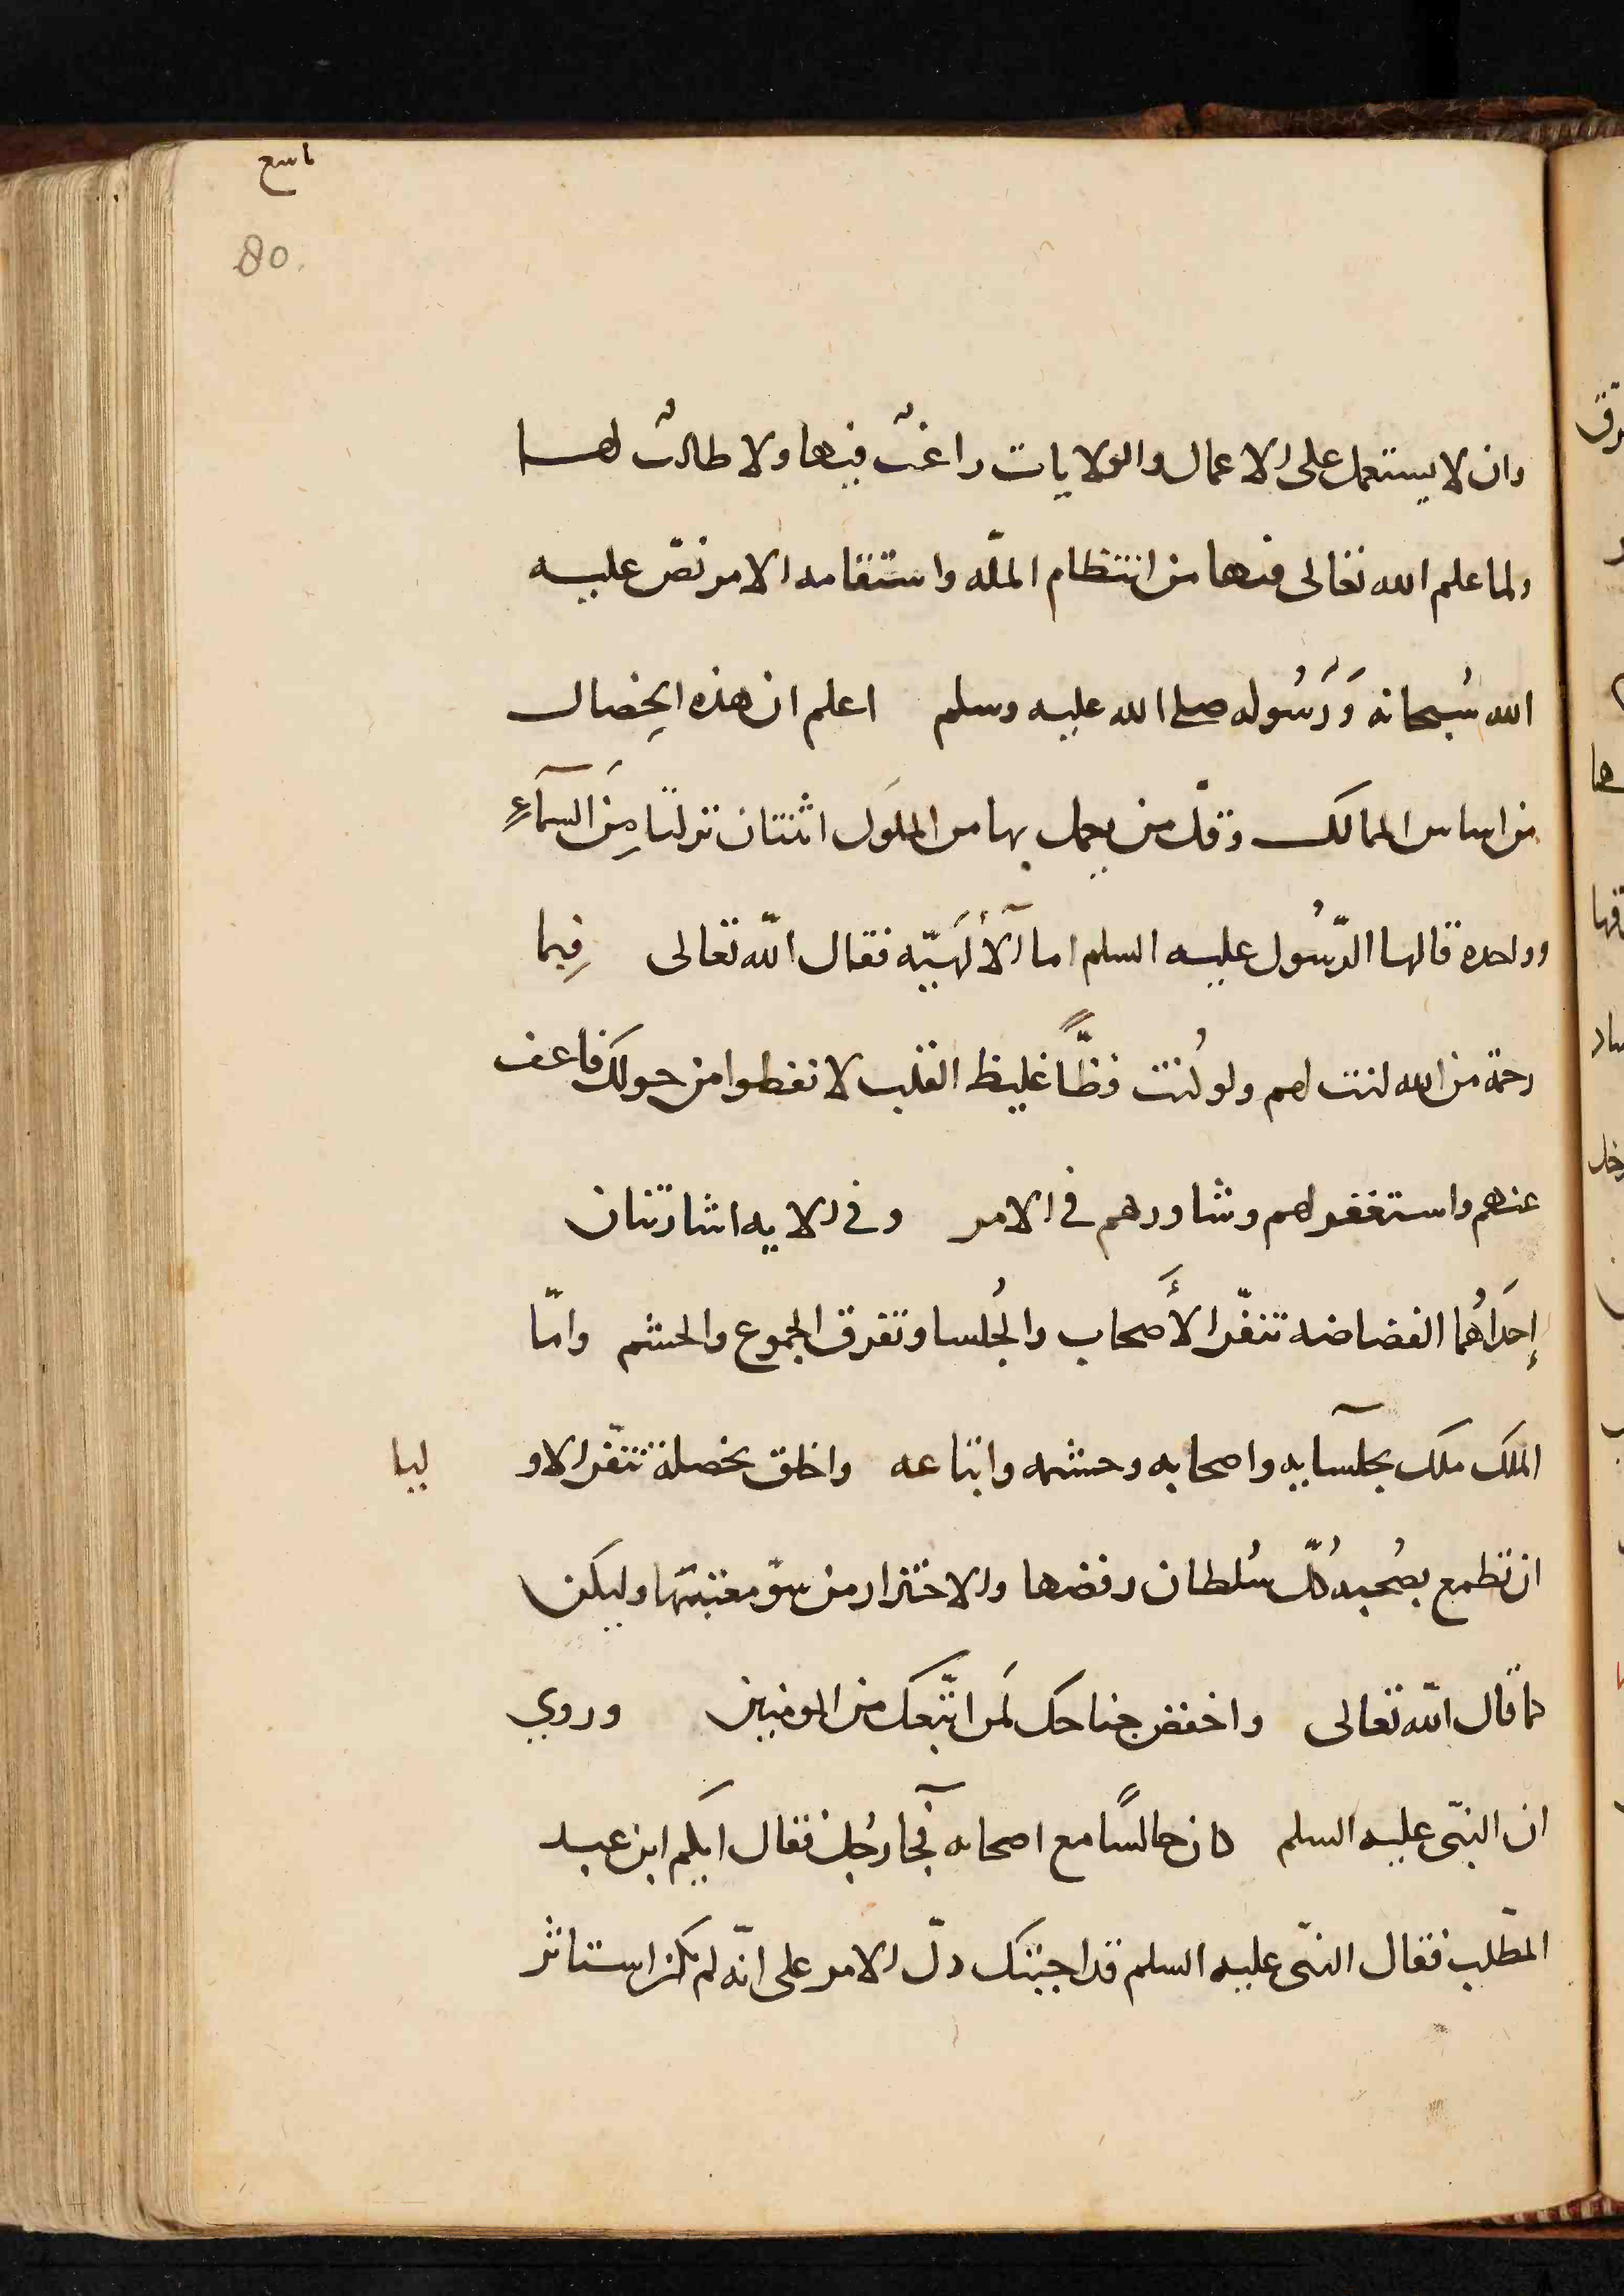 تاسع
80.
وان لا يستعمل على الاعمال والولايات راغبٌ فيها ولا طالبٌ لها
ولما علم الله تعالى فيها من انتظام الملّه واستقامه الامر نصّ عليه
الله سُبحانه وَرَسُوله صلى الله عليه وسلم اعلم ان هذه الخِصال
من اساس الممالك وقلّ من يعمل بها من الملوَك اثنتان نزلتا مِنَ السمآءِ
وواحده قالها الرّسُول عليه السلم اما آلأَلَهيّه فقال اللّه تعالى فِبما
رحمة من الله لنت لهم ولو كُنت فظًّا غليظ القلب لا نفظوا من حولك فاعف
عنهم واستغفر لهم وشاورهم في الامر وفي الايه اشارتان
إحَداهُما الفضاضه تنفّر الأَصحاب والجُلسا وتفرق الجموع والحشم وامّا
الملك ملك بجلسآيه واصحابه وحشمه واتباعه واخلق بخصلة تنفّر الاو ليا
ان تطمع بصُحبه كُلّ سُلطان رفضها والاحتزار من سوّ مغبتها وليكن
كما قال اللّه تعالى واخفض جناحك لمَن اتّبعك من المومنين وروي
ان النبّى عليه السلم كان جالسًا مع اصحابه فجآ رجُل فقال ايكم ابن عبد
المطّلب فقال النبّى عليه السلم قد اجبتك دلّ الامر على انّه لم يكن استاثر